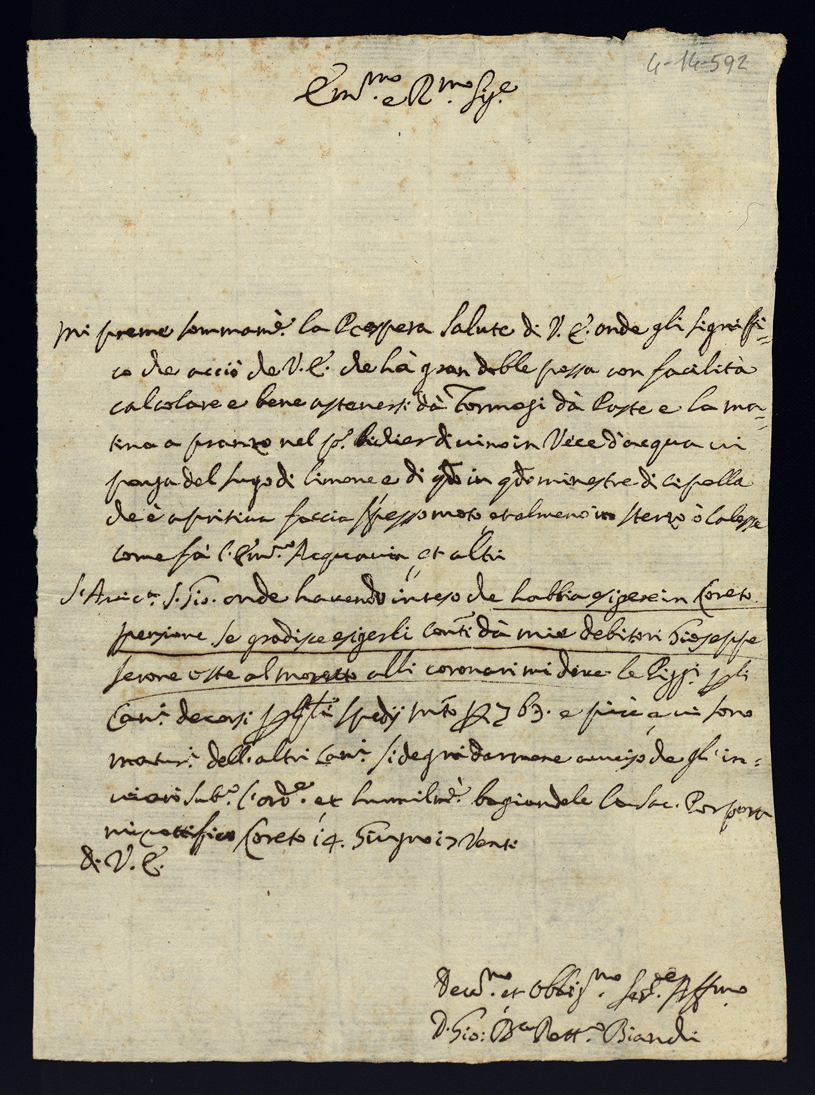 4-14-592
Em.mo e R.mo Sig.e
Mi preme sommam.e la Prospera Salute di V. E. onde gli signiffi=
co che acciò che V. E. che hà gran doble possa con facilità
calcolare e bene astenersi dà formagi dà Paste e la ma=
tina a pranzo nel p.o di vino in Vece d'acqua vi
ponga del sugo di limone e di in minestre di cipolla
che è apritiva faccia spesso moto, et almeno in sterzo ò calesse
come fà l'Em.o Acquaviva, et altri
S. Gio. onde havendo inteso che habbia esigere in Loreto
pensione se gradisce esigerli dà miei debitori Gioseppe
oste al moretto alli coronari mi deve le
Can. decorsi 763. e più e vi sono
matur. dell'altri Can. si degni darmene avviso che gli in=
viarò sub.o l'ord.e et humilm.e bagiandole la Sac. Porpora
mi ratifico Loreto 14. Giugno Venti
di V. E.
Dev.mo et Obblig.mo Ser.e Aff.mo
D. Gio: B.a Rett. Bianchi